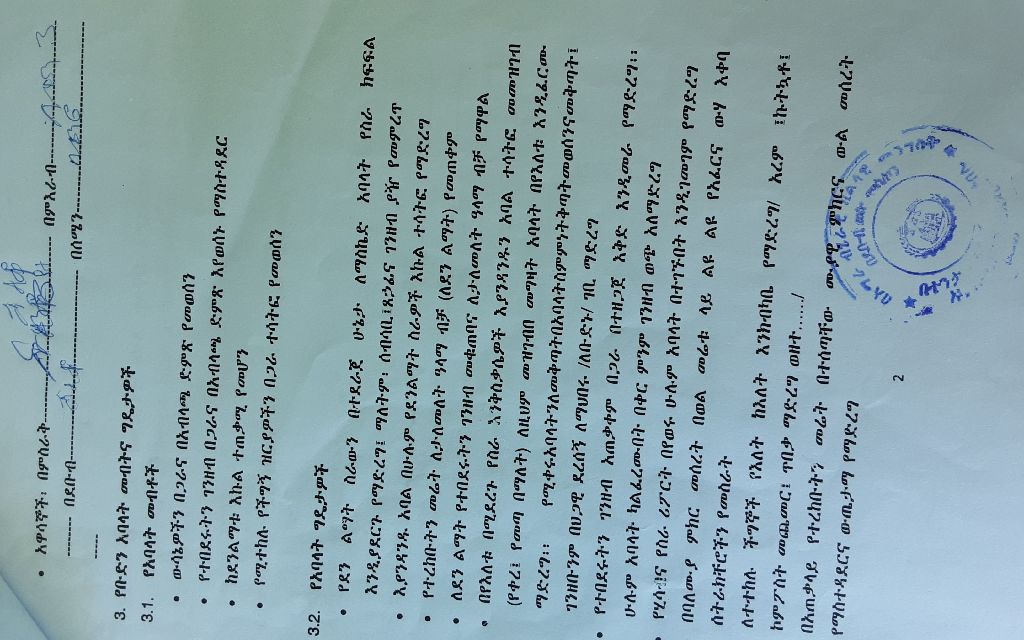 • አዋሳኞች፡ በምስራቅ-------------------- በምእራብ--------------------
------- በደቡብ-------------------- በሰሜን--------------------
----
3. የቡድን አባላት መብትና ግዴታዎች
3.1. የአባላት መብቶች
• ውሳኔዎችን በጋራና በአብላጫ ድምጽ የመወሰን
• የተበደሩትን ገንዘብ በጋራና በአብላጫ ድምጽ እየወሰኑ የማስተዳደር
• ከደንልማቱ እኩል ተጠቃሚ የመሆን
• የሚተከሉ የችግኝ ዝርያዎችን በጋራ ተሳትፎ የመወሰን
3.2. የአባላት ግዴታዎች
• የደን ልማት ስራውን በተደራጀ ሁኔታ ለማስኬድ አባላት የስራ ክፍፍል
እንዲያደርጉ የማድረግ፤ ማለትም፡ ሰብሳቢ፤ጸኃፊና ገንዘብ ያዥ የመምረጥ
• እያንዳንዱ አባል በሁሉም የደንልማት ስራዎች እኩል ተሳትፎ የማድረግ
• የተረከቡትን መሬት ለታለመለት ዓላማ ብቻ (ለደን ልማት) የመጠቀም
• ለደን ልማት የተበደሩትን ገንዘብ መቆጠብና ለታለመለት ዓላማ ብቻ የማዋል
• በየእለቱ በሚደረጉ የስራ እንቅስቃሴዎች እያንዳንዱ አባል ተሳትፎ መመዝገብ
(የቀረ፤ የመጣ በማለት) ለዚህም መዝገብ መግዛት አባላት በየእለቱ እንዲፈርሙ
ማድረግ፡፡ የሚቀሩአባላትንለመቅጣትበአባላትስምምነትቅጣትመወሰንናመቅጣት፤
ገንዘቡንም በህጋዊ ደረሰኝ ለማህበሩ /ለቡድኑ/ ገቢ ማድረግ
• የተበደሩትን ገንዘብ አጠቃቀም በጋራ በተዘጋጀ እቅድ እንዲመራ የማድረግ፡፡
ሁሉም አባላት ካልፈረሙበት በቀር ምንም ገንዘብ ወጭ አለማድረግ
• የሂሳብና የስራ ሪፖርት በየወሩ ሁሉም አባላት በተገኙበት እንዲገመገም የማድረግ
በባለሙያ ምክር መሰረት በወል መሬቱ ላይ ልዩ ልዩ የአፈርና ውሃ እቀባ
ስትራክቸሮችን የመስራት
ለተተከሉ ችግኞች የእለት ከእለት እንክብካቤ የማድረግ/ አረም ፤ኩትኳቶ፤
ከምፖስት መጨመር፤ ጥበቃ ማድረግ ወዘተ....../
በአጠቃላይ የተረከቡትን መሬት በተሰጣቸው ሙያዊ ምክርና ውል መሰረት
የማስተዳደርና ውጤታማ የማድረግ
2